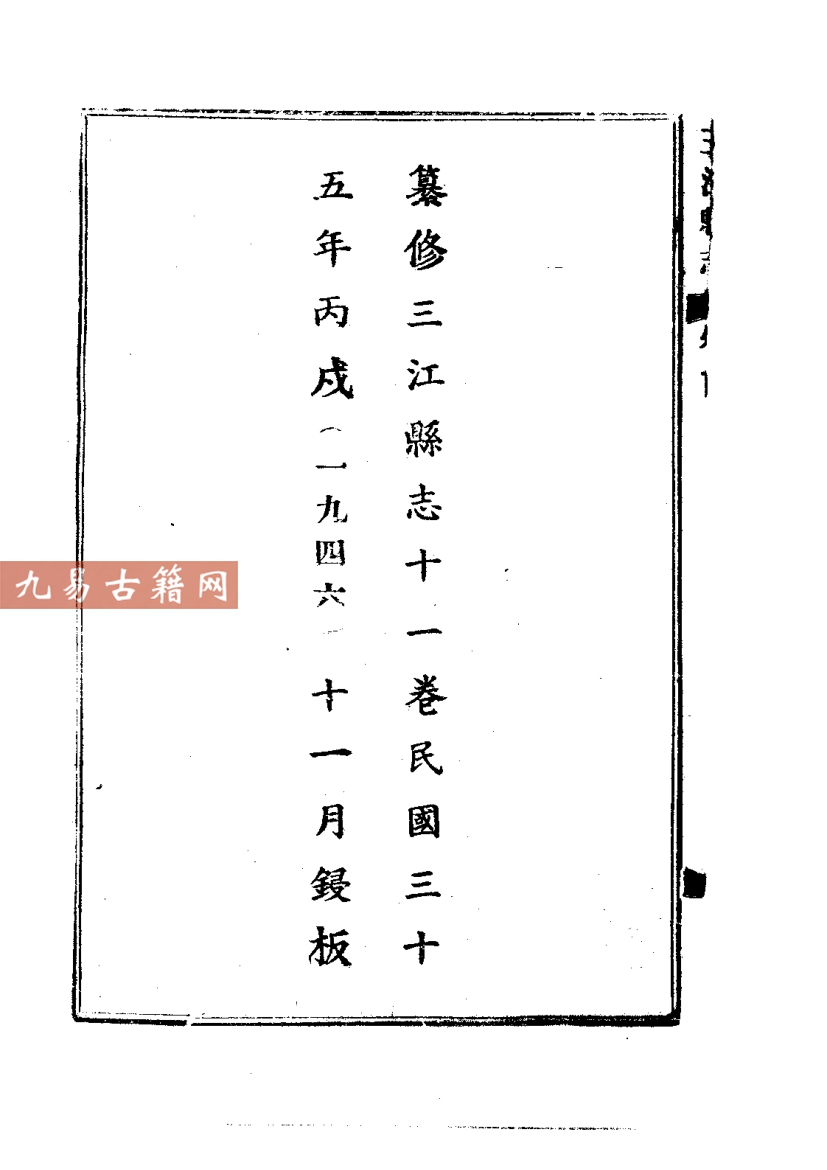 纂修三江縣志十一卷民國三十
五年丙戌(一九四六)十一月鋟板
九易古籍网